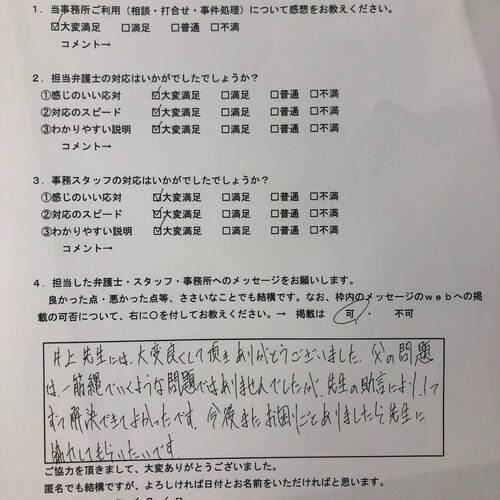 1．当事務所ご利用（相談・打合せ・事件処理）について感想をお教えください。
☑大変満足 □満足 □普通 □不満
コメント→
2．担当弁護士の対応はいかがでしたでしょうか？
①感じのいい応対 ☑大変満足 □満足 □普通 □不満
②対応のスピード ☑大変満足 □満足 □普通 □不満
③わかりやすい説明 ☑大変満足 □満足 □普通 □不満
コメント→
3．事務スタッフの対応はいかがでしたでしょうか？
①感じのいい応対 ☑大変満足 □満足 □普通 □不満
②対応のスピード ☑大変満足 □満足 □普通 □不満
③わかりやすい説明 ☑大変満足 □満足 □普通 □不満
コメント→
4．担当した弁護士・スタッフ・事務所へのメッセージをお願いします。
良かった点・悪かった点等、ささいなことでも結構です。なお、枠内のメッセージのｗｅｂへの掲
載の可否について、右に○を付してお教えください。→ 掲載は 可 ・ 不可
井上先生には、大変良くして頂きありがとうございました。父の問題
は、一筋縄でいくような問題ではありませんでしたが、先生の助言により、1つ
ずつ解決できてよかったです。今後またお困りごとありましたら先生に
協力してもらいたいです
ご協力を頂きまして、大変ありがとうございました。
匿名でも結構ですが、よろしければ日付とお名前をいただければと思います。